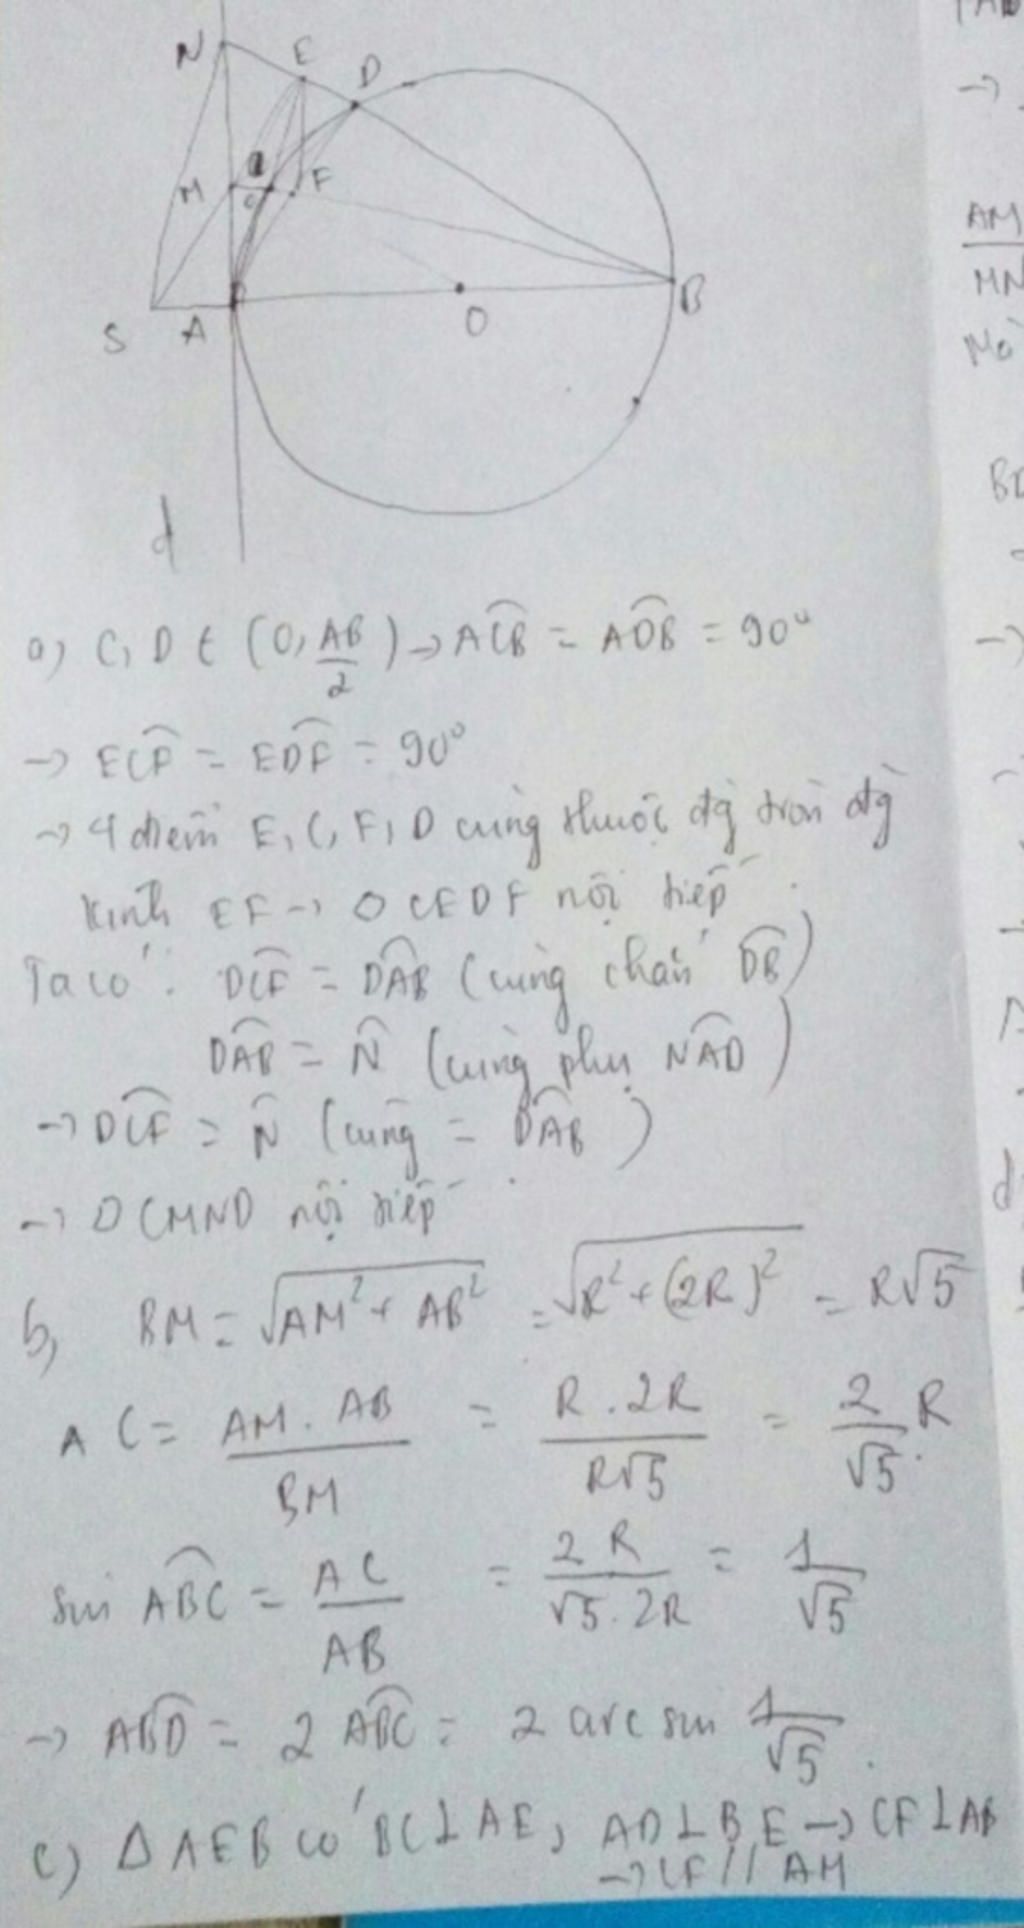 N
E
D
M
F
C
S
A
O
B
d
AM
MN
a) C, D ∈ (O, AB/2) → ACB = ADB = 90°
→ ECF = EDF = 90°
→ 4 điểm E, C, F, D cùng thuộc đg tròn đg
kính EF → ◇ CEDF nội tiếp.
Ta có: DCF = DAB (cùng chắn DB)
DAB = N (cùng phụ NAD)
→ DCF = N (cùng = DAB)
→ ◇ CMND nội tiếp.
b, BM = √(AM² + AB²) = √(R² + (2R)²) = R√5
AC = AM . AB / BM = R . 2R / R√5 = 2/√5 R.
sin ABC = AC / AB = 2R / √5 . 2R = 1/√5
→ ABD = 2 ABC = 2 arc sin 1/√5.
c) Δ AEB có BC ⊥ AE, AD ⊥ BE → EF ⊥ AB
→ EF // AM